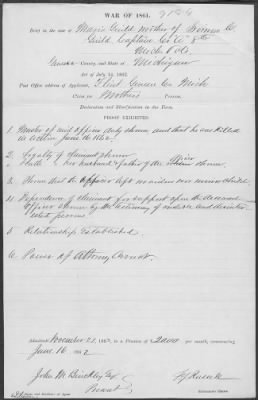 WAR OF 1861.
9126
Brief in the case of Maria Guild mother of
Guild Captain Co. "A" 8th
Mich Vols
County, and State of Michigan
Act of July 14, 1862.
Post Office address of Applicant, Flint Genesee Co Mich
Claim for Mother's Pension.
Declaration and Identification in due Form.
PROOF EXHIBITED.
1 Muster of said officer duly shown and that he was killed
in action June 16. 1862
2. Loyalty of claimant shown
3 Death of her husband & father of the officer shown.
4 Shown that the officer left no widow nor minor child.
4 Dependence of claimant for support upon the deceased
officer shown by the testimony of credible and disinter-
ested persons
5 Relationship Established
6 Power of Attorney Correct.
Admitted November 21, 1862, to a Pension of $20.00 per month, commencing
June 16 1862
John M Binckley Esq
Present